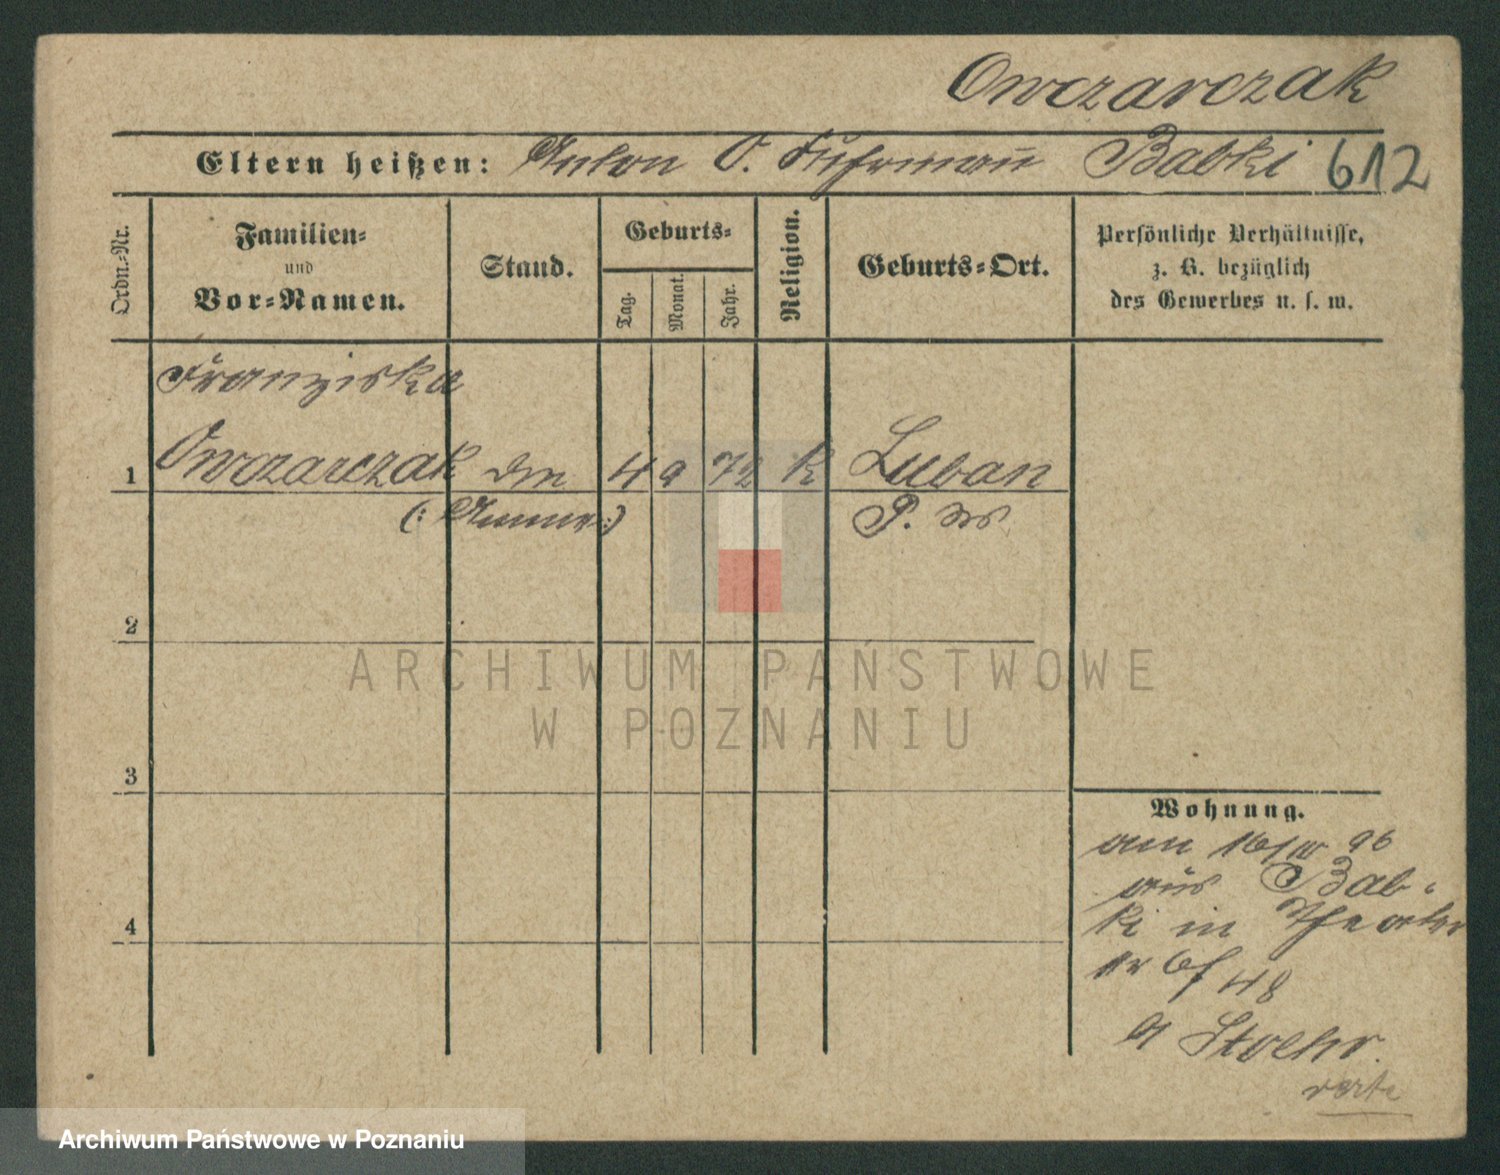 Owczarczak
Eltern heißen: Anton O. Fuhrmann Babki 612
Ordn.-Nr.
Familien-
und
Vor-Namen.
Stand.
Geburts-
Tag.
Monat.
Jahr.
Religion.
Geburts-Ort.
Persönliche Verhältnisse,
z. B. bezüglich
des Gewerbes u. s. w.
Franziska
1 Owczarczak 4 9 72 k Luban
(: Amme :) P.
2
3
4
ARCHIWUM PAŃSTWOWE
W POZNANIU
Wohnung.
am 16/IV 96
aus Bab-
ki in Theater
48
Stoehr.
verte
Archiwum Państwowe w Poznaniu